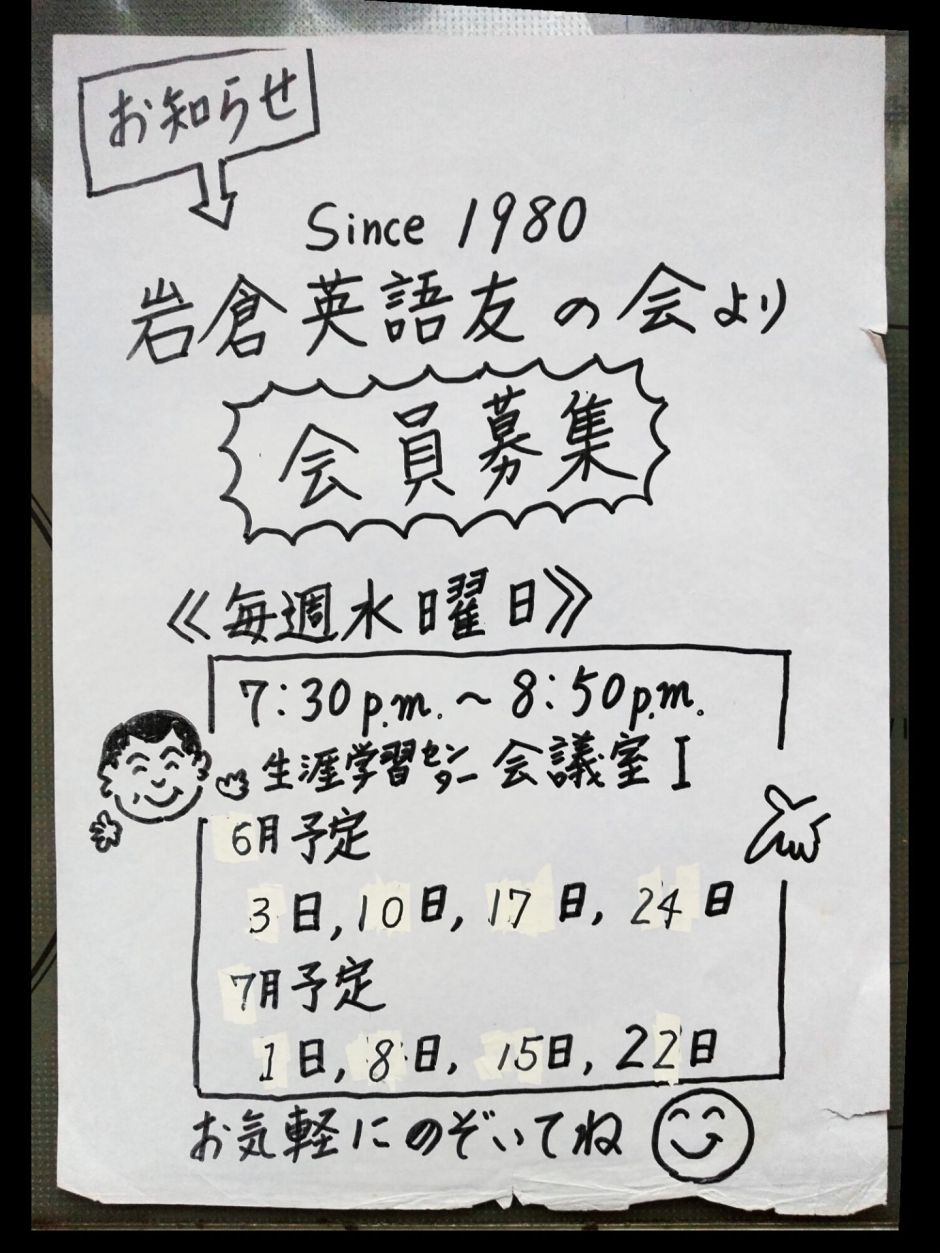 お知らせ
Since 1980
岩倉英語友の会より
会員募集
《毎週水曜日》
7:30p.m.～8:50p.m.
生涯学習センター 会議室I
6月予定
3日,10日,17日,24日
7月予定
1日,8日,15日,22日
お気軽にのぞいてね